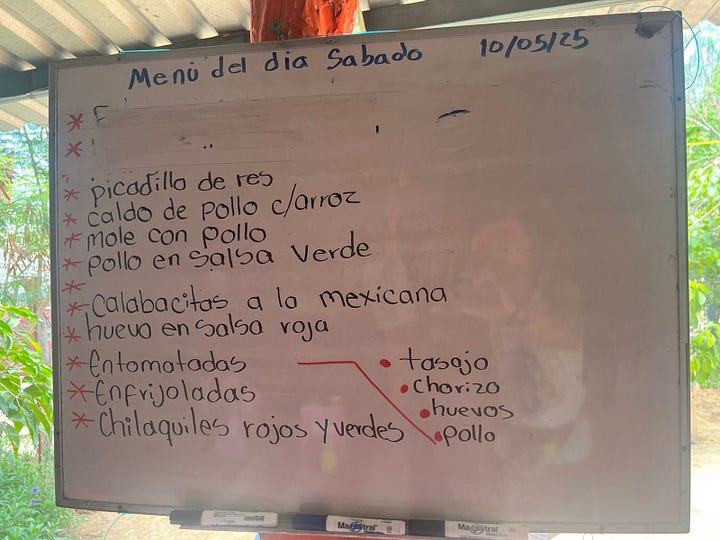 Menú del dia Sabado 10/05/25
* F
*
* picadillo de res
* caldo de pollo c/arroz
* mole con pollo
* pollo en salsa Verde
*
* Calabacitas a la mexicana
* huevo en salsa roja
* Entomatadas
* Enfrijoladas
* Chilaquiles rojos y verdes
• tasajo
• chorizo
• huevos
• pollo
Magistral
Magistral